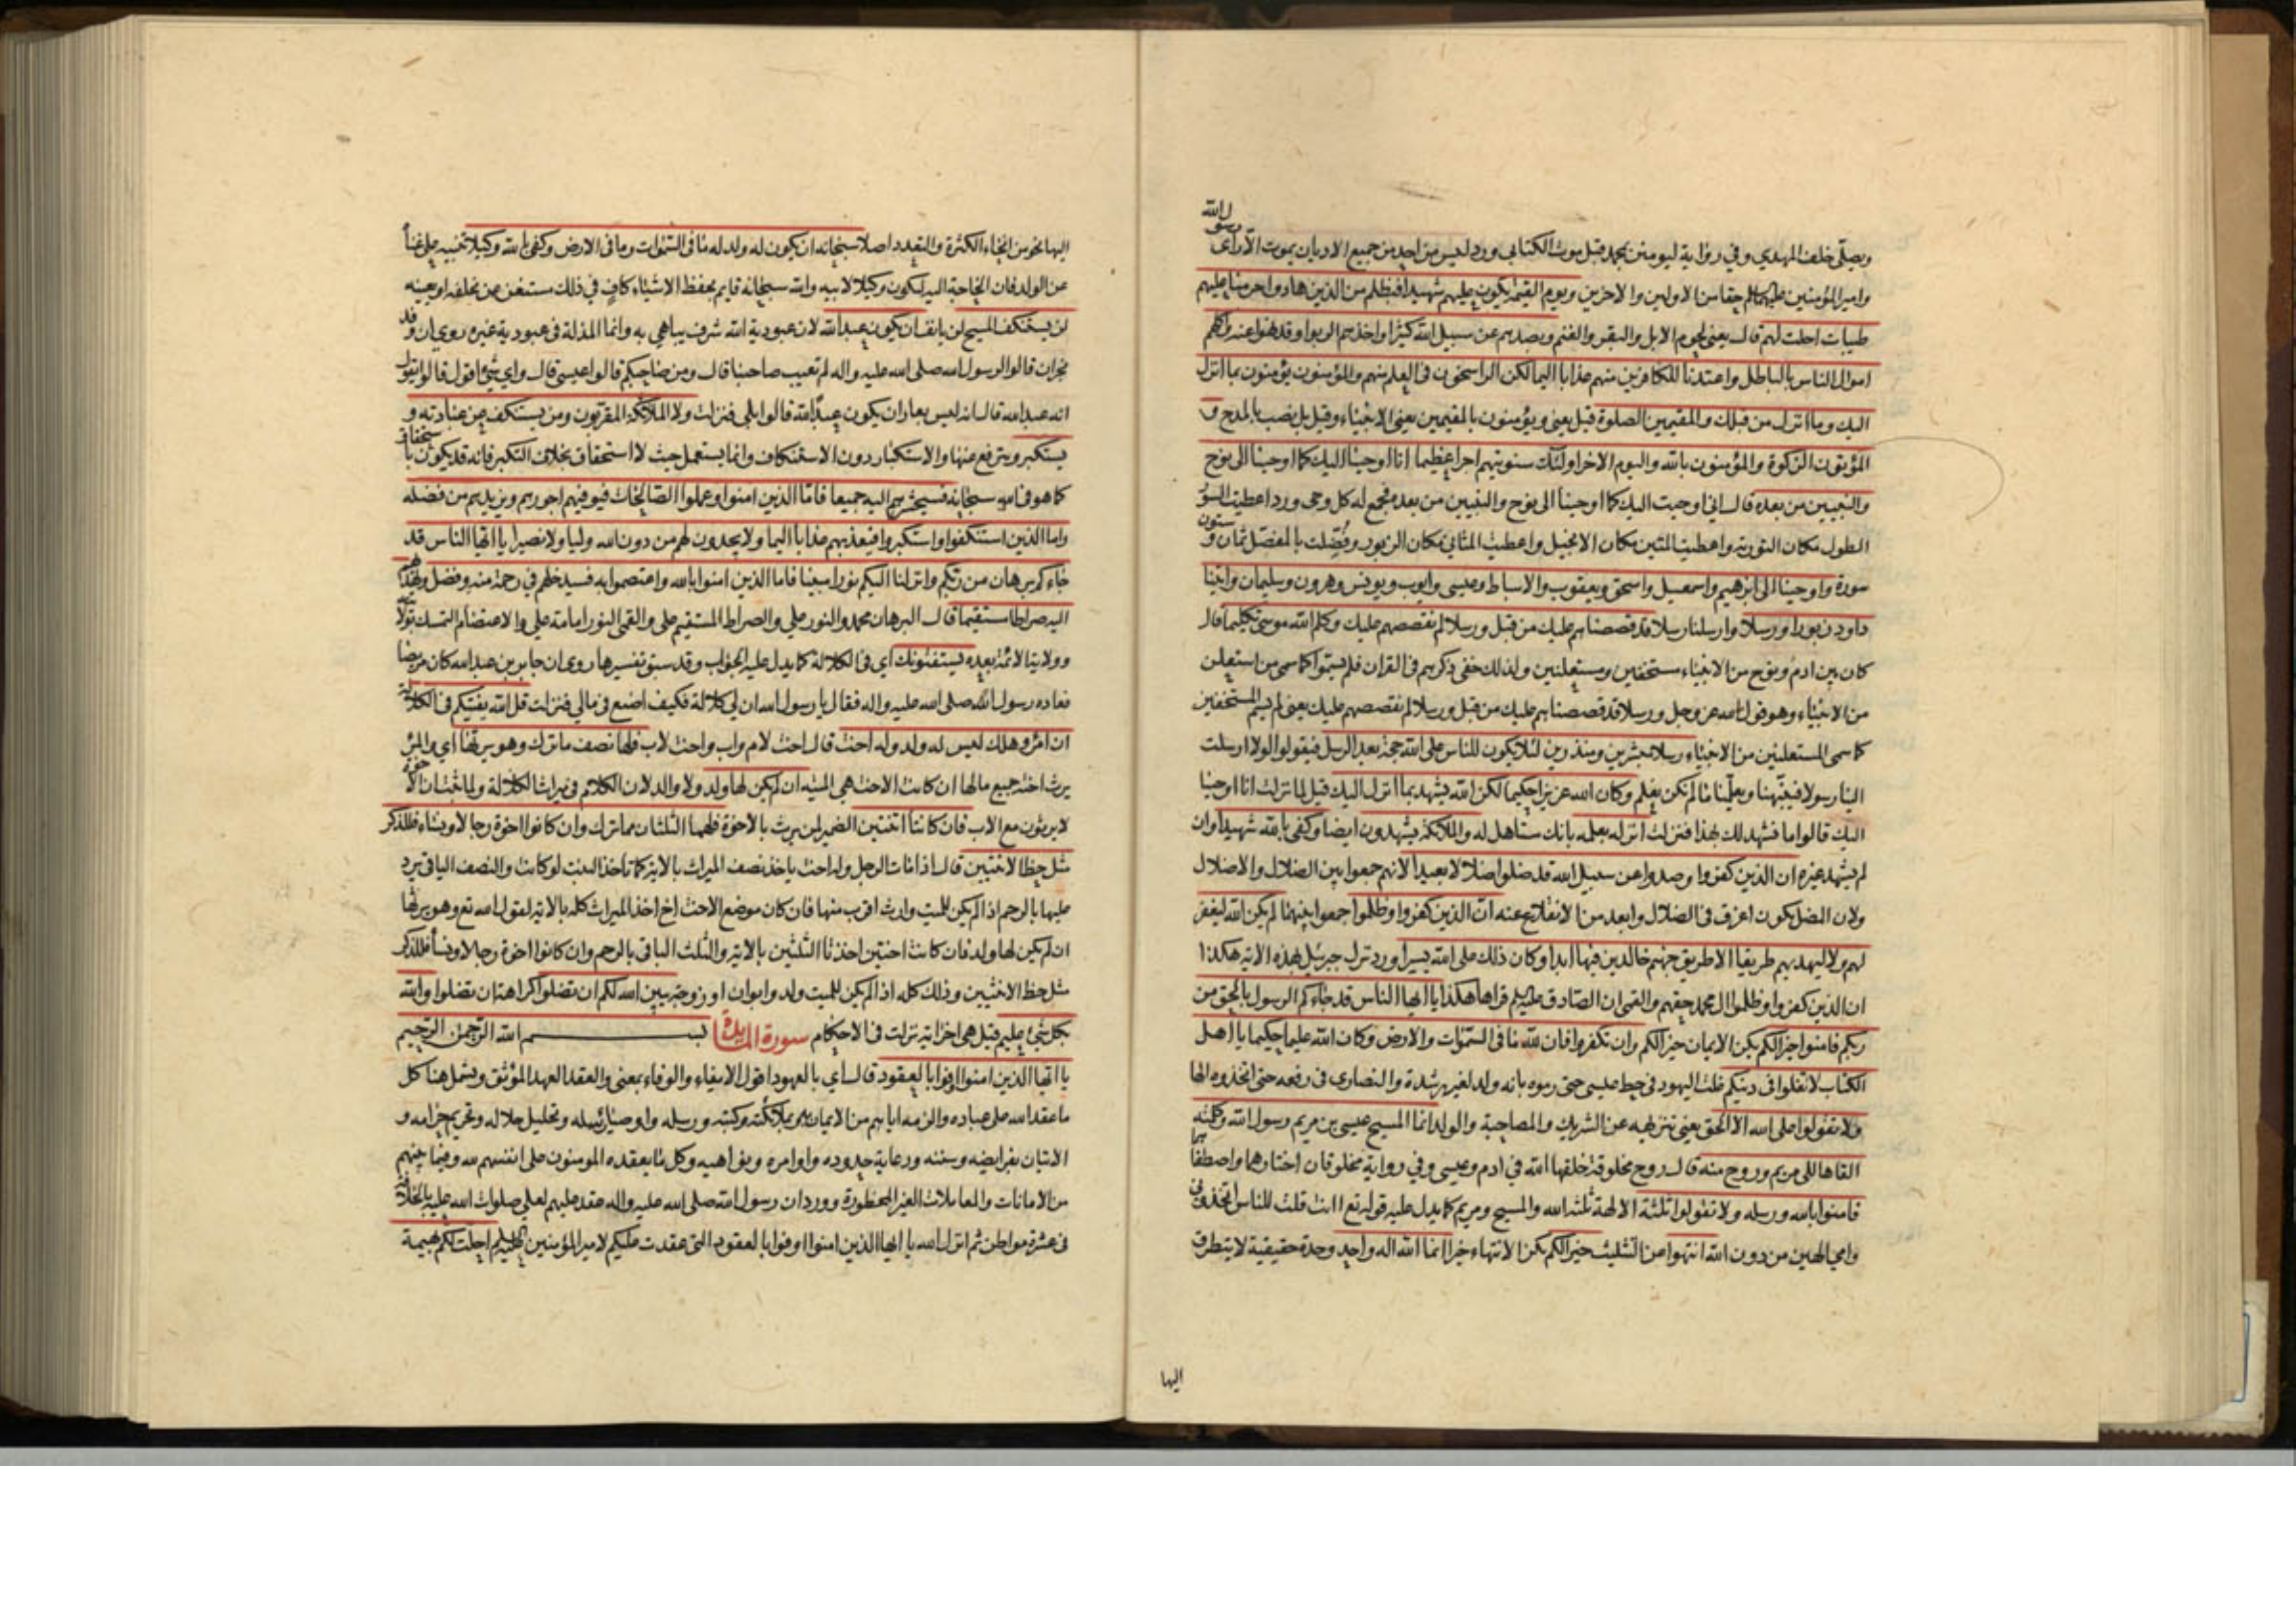 رسول الله
ويصلّي خلف المهدي وفي رواية ليومنن بمحمد قبل موت الكتابي وورد ليس من احد من جميع الاديان يموت الا رأى
وامير المؤمنين عليهما السلم حقا من الاولين والاخرين ويوم القيمة يكون عليهم شهيدا فبظلم من الذين هادوا حرمنا عليهم
طيبات احلت لهم قال يعني لحوم الابل والبقر والغنم وبصدهم عن سبيل الله كثيرا واخذهم الربوا وقد نهوا عنه واكلهم
اموال الناس بالباطل واعتدنا للكافرين منهم عذابا اليما لكن الراسخون في العلم منهم والمؤمنون يؤمنون بما انزل
اليك وما انزل من قبلك والمقيمين الصلوة قيل يعني ويؤمنون بالمقيمين يعني الانبياء وقيل بل نصب بالمدح و
المؤتون الزكوة والمؤمنون بالله واليوم الاخر اولئك سنؤتيهم اجرا عظيما انا اوحينا اليك كما اوحينا الى نوح
والنبيين من بعده قال اني اوحيت اليك كما اوحينا الى نوح والنبيين من بعده فجمع له كل وحي وورد اعطيت السور
الطول مكان التورية واعطيت المئين مكان الانجيل واعطيت المثاني مكان الزبور وفضلت بالمفصل ثمان و ستون
سورة واوحينا الى ابرهيم واسمعيل واسحق ويعقوب والاسباط وعيسى وايوب ويونس وهرون وسليمان واتينا
داود زبورا ورسلا وارسلنا رسلا قد قصصناهم عليك من قبل ورسلا لم نقصصهم عليك وكلم الله موسى تكليما قال
كان بين ادم ونوح من الانبياء مستخفين ومستعلنين ولذلك خفي ذكرهم في القران فلم يسموا كما سمى من استعلن
من الانبياء وهو قول الله عز وجل ورسلا قد قصصناهم عليك من قبل ورسلا لم نقصصهم عليك يعني لم يسم المستخفين
كما سمى المستعلنين من الانبياء رسلا مبشرين ومنذرين لئلا يكون للناس على الله حجة بعد الرسل فيقولوا لولا ارسلت
الينا رسولا فينبهنا ويعلمنا ما لم نكن نعلم وكان الله عزيزا حكيما لكن الله يشهد بما انزل اليك قيل لما نزلت انا اوحينا
اليك قالوا ما نشهد لك بهذا فنزلت انزله بعلمه بانك مستاهل له والملائكة يشهدون ايضا وكفى بالله شهيدا وان
لم يشهد غيره ان الذين كفروا وصدوا عن سبيل الله قد ضلوا ضلالا بعيدا لانهم جمعوا بين الضلال والاضلال
ولان المضل يكون اغرق في الضلال وابعد من الانقلاع عنه ان الذين كفروا وظلموا جمعوا بينهما لم يكن الله ليغفر
لهم ولا ليهديهم طريقا الا طريق جهنم خالدين فيها ابدا وكان ذلك على الله يسيرا ورد نزل جبرئيل بهذه الاية هكذا
ان الذين كفروا وظلموا ال محمد حقهم والقمي ان الصادق عليه السلم قراها هكذا يا ايها الناس قد جاءكم الرسول بالحق من
ربكم فامنوا خيرا لكم يكن الايمان خيرا لكم وان تكفروا فان لله ما في السموات والارض وكان الله عليما حكيما يا اهل
الكتاب لا تغلوا في دينكم غلت اليهود في حط عيسى حتى رموه بانه ولد لغير رشدة والنصارى في رفعه حتى اتخذوه الها
ولا تقولوا على الله الا الحق يعني تنزيهه عن الشريك والصاحبة والولد انما المسيح عيسى بن مريم رسول الله وكلمته
القاها الى مريم وروح منه قال روح مخلوقة خلقها الله في ادم وعيسى وفي رواية مخلوقان اختارهما واصطفاهما
فامنوا بالله ورسله ولا تقولوا ثلثة الالهة ثلثة الله والمسيح ومريم كما يدل عليه قوله تع اانت قلت للناس اتخذوني
وامي الهين من دون الله انتهوا عن التثليث خيرا لكم يكن الانتهاء خيرا انما الله اله واحد وحدة حقيقية لا يتطرق
اليها
اليها نحو من انحاء الكثرة والتعدد اصلا سبحانه ان يكون له ولد له ما في السموات وما في الارض وكفى بالله وكيلا تنبيه على غناه
عن الولد فان الحاجة اليه ليكون وكيلا لابيه والله سبحانه قايم بحفظ الاشياء كاف في ذلك مستغن عمن يخلفه او يعينه
لن يستنكف المسيح لن يانف ان يكون عبدا لله لان عبودية الله شرف يباهي به وانما المذلة في عبودية غيره روي ان وفد
نجران قالوا لرسول الله صلى الله عليه واله لم تعيب صاحبنا قال ومن صاحبكم قالوا عيسى قال واي شئ اقول قالوا تقول
انه عبد الله قال انه ليس بعار ان يكون عبدا لله قالوا بلى فنزلت ولا الملائكة المقربون ومن يستنكف عن عبادته و
يستكبر ويترفع عنها والاستكبار دون الاستنكاف وانما يستعمل حيث لا استحقاق بخلاف التكبر فانه قد يكون باستحقاق
كما هو في الله سبحانه فسيحشرهم اليه جميعا فاما الذين امنوا وعملوا الصالحات فيوفيهم اجورهم ويزيدهم من فضله
واما الذين استنكفوا واستكبروا فيعذبهم عذابا اليما ولا يجدون لهم من دون الله وليا ولا نصيرا يا ايها الناس قد
جاءكم برهان من ربكم وانزلنا اليكم نورا مبينا فاما الذين امنوا بالله واعتصموا به فسيدخلهم في رحمة منه وفضل ويهديهم
اليه صراطا مستقيما قال البرهان محمد والنور علي والصراط المستقيم علي والقمي النور امامة علي والاعتصام التمسك بولايته
وولاية الائمة بعده يستفتونك اي في الكلالة كما يدل عليه الجواب وقد سبق تفسيرها روي ان جابر بن عبد الله كان مريضا
فعاده رسول الله صلى الله عليه واله فقال يا رسول الله ان لي كلالة فكيف اصنع في مالي فنزلت قل الله يفتيكم في الكلالة
ان امرؤ هلك ليس له ولد وله اخت قال اخت لام واب واخت لاب فلها نصف ما ترك وهو يرثها اي والمرء
يرث اخته جميع مالها ان كانت الاخت هي الميتة ان لم يكن لها ولد ولا والد لان الكلام في ميراث الكلالة ولما ثبت ان الاخوة
لا يرثون مع الاب فان كانتا اثنتين الضمير لمن يرث بالاخوة فلهما الثلثان مما ترك وان كانوا اخوة رجالا ونساء فللذكر
مثل حظ الانثيين قال اذا مات الرجل وله اخت ياخذ نصف الميراث بالاية كما تاخذ البنت لو كانت والنصف الباقي يرد
عليها بالرحم اذا لم يكن للميت وارث اقرب منها فان كان موضع الاخت اخ اخذ الميراث كله بالاية لقول الله تع وهو يرثها
ان لم يكن لها ولد فان كانت اختين اخذتا الثلثين بالاية والثلث الباقي بالرحم وان كانوا اخوة رجالا ونساء فللذكر
مثل حظ الانثيين وذلك كله اذا لم يكن للميت ولد وابوان او زوجة يبين الله لكم ان تضلوا كراهة ان تضلوا والله
بكل شئ عليم قيل هي اخر اية نزلت في الاحكام سورة المايدة بسم الله الرحمن الرحيم
يا ايها الذين امنوا اوفوا بالعقود قال اي بالعهود اقول الايفاء والوفاء بمعنى والعقد العهد الموثق ويشمل هنا كل
ما عقد الله على عباده والزمه اياهم من الايمان به وبملائكته وكتبه ورسله واوصياء رسله وتحليل حلاله وتحريم حرامه و
الاتيان بفرايضه وسننه ورعاية حدوده واوامره ونواهيه وكل ما يعقده المومنون على انفسهم لله وفيما بينهم
من الامانات والمعاملات الغير المحظورة وورد ان رسول الله صلى الله عليه واله عقد عليهم لعلي صلوات الله عليه بالخلافة
في عشرة مواطن ثم انزل الله يا ايها الذين امنوا اوفوا بالعقود التي عقدت عليكم لامير المؤمنين عليه السلم احلت لكم بهيمة